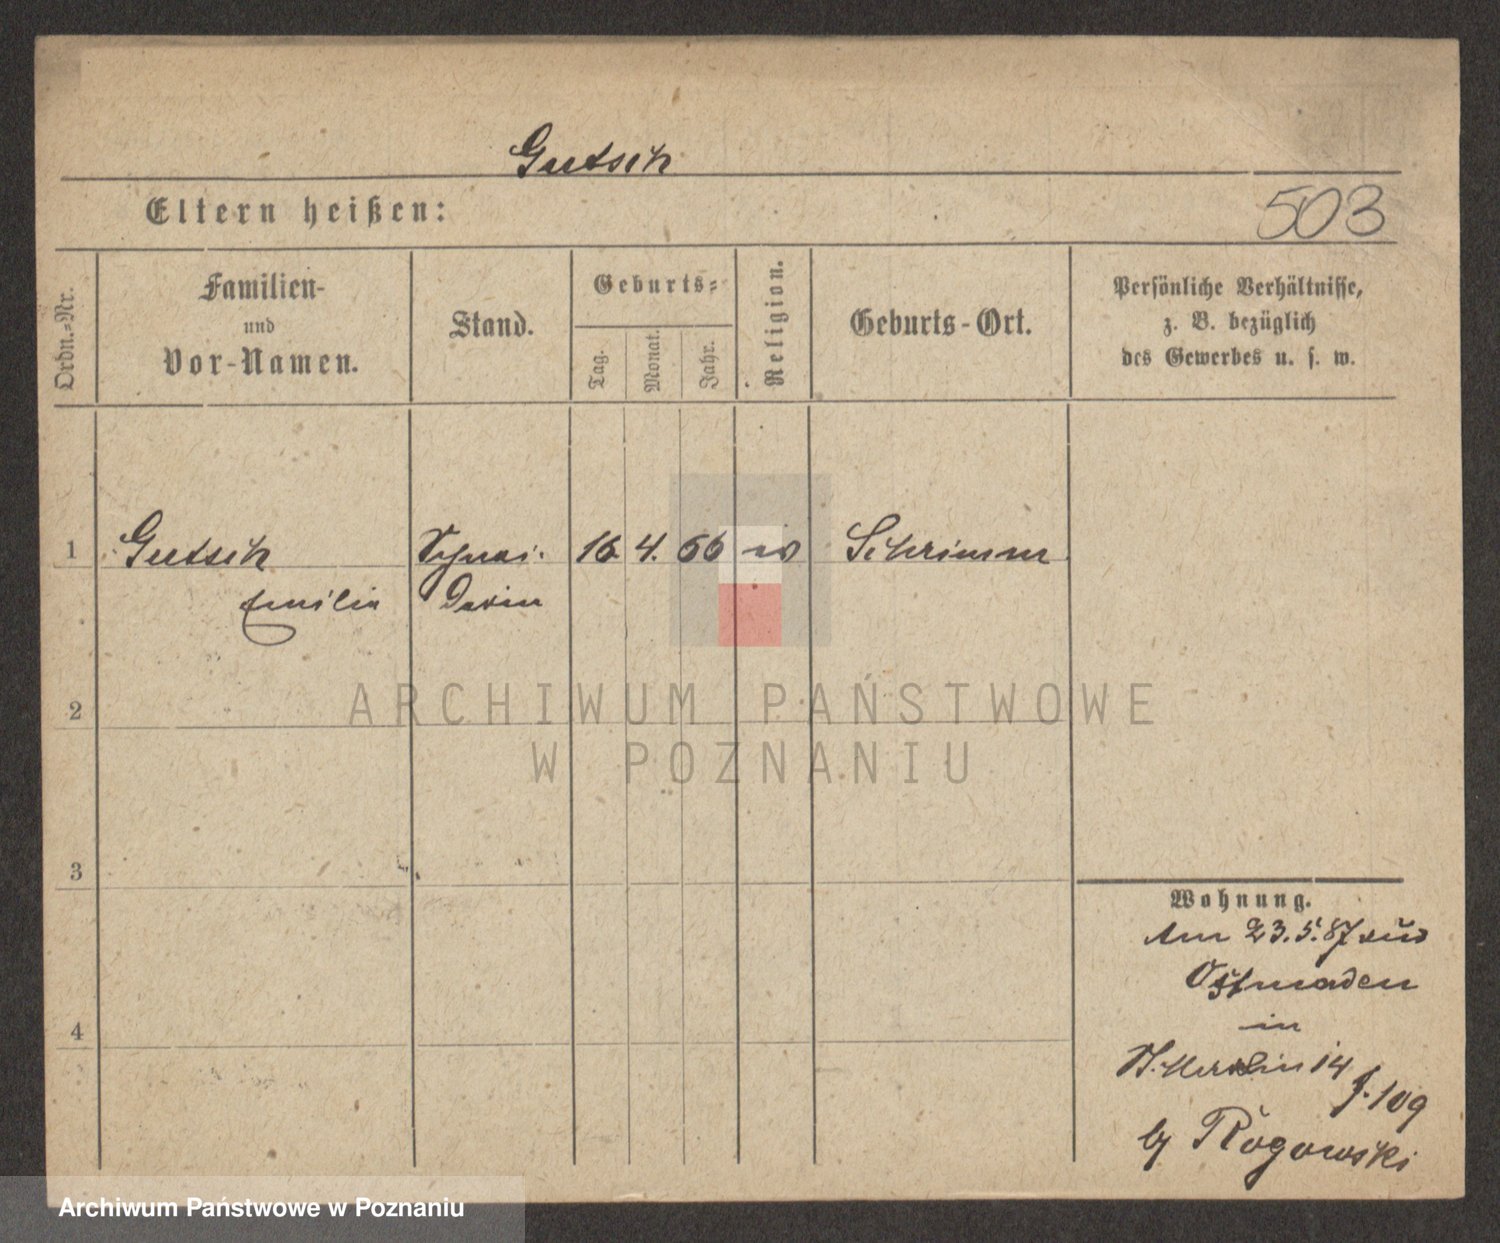 Gutsch
Eltern heißen:
503
Ordn.-Nr.
Familien-
und
Vor-Namen.
Stand.
Geburts-
Tag.
Monat.
Jahr.
Religion.
Geburts-Ort.
Persönliche Verhältnisse,
z. B. bezüglich
des Gewerbes u. s. w.
1
Gutsch
Emilia
Schnei-
derin
16 4. 66
Schrimm
2
3
4
Wohnung.
Am 23.5.87 aus
in
St. Martin 14
f. 109
by Rogowski
ARCHIWUM PAŃSTWOWE
W POZNANIU
Archiwum Państwowe w Poznaniu